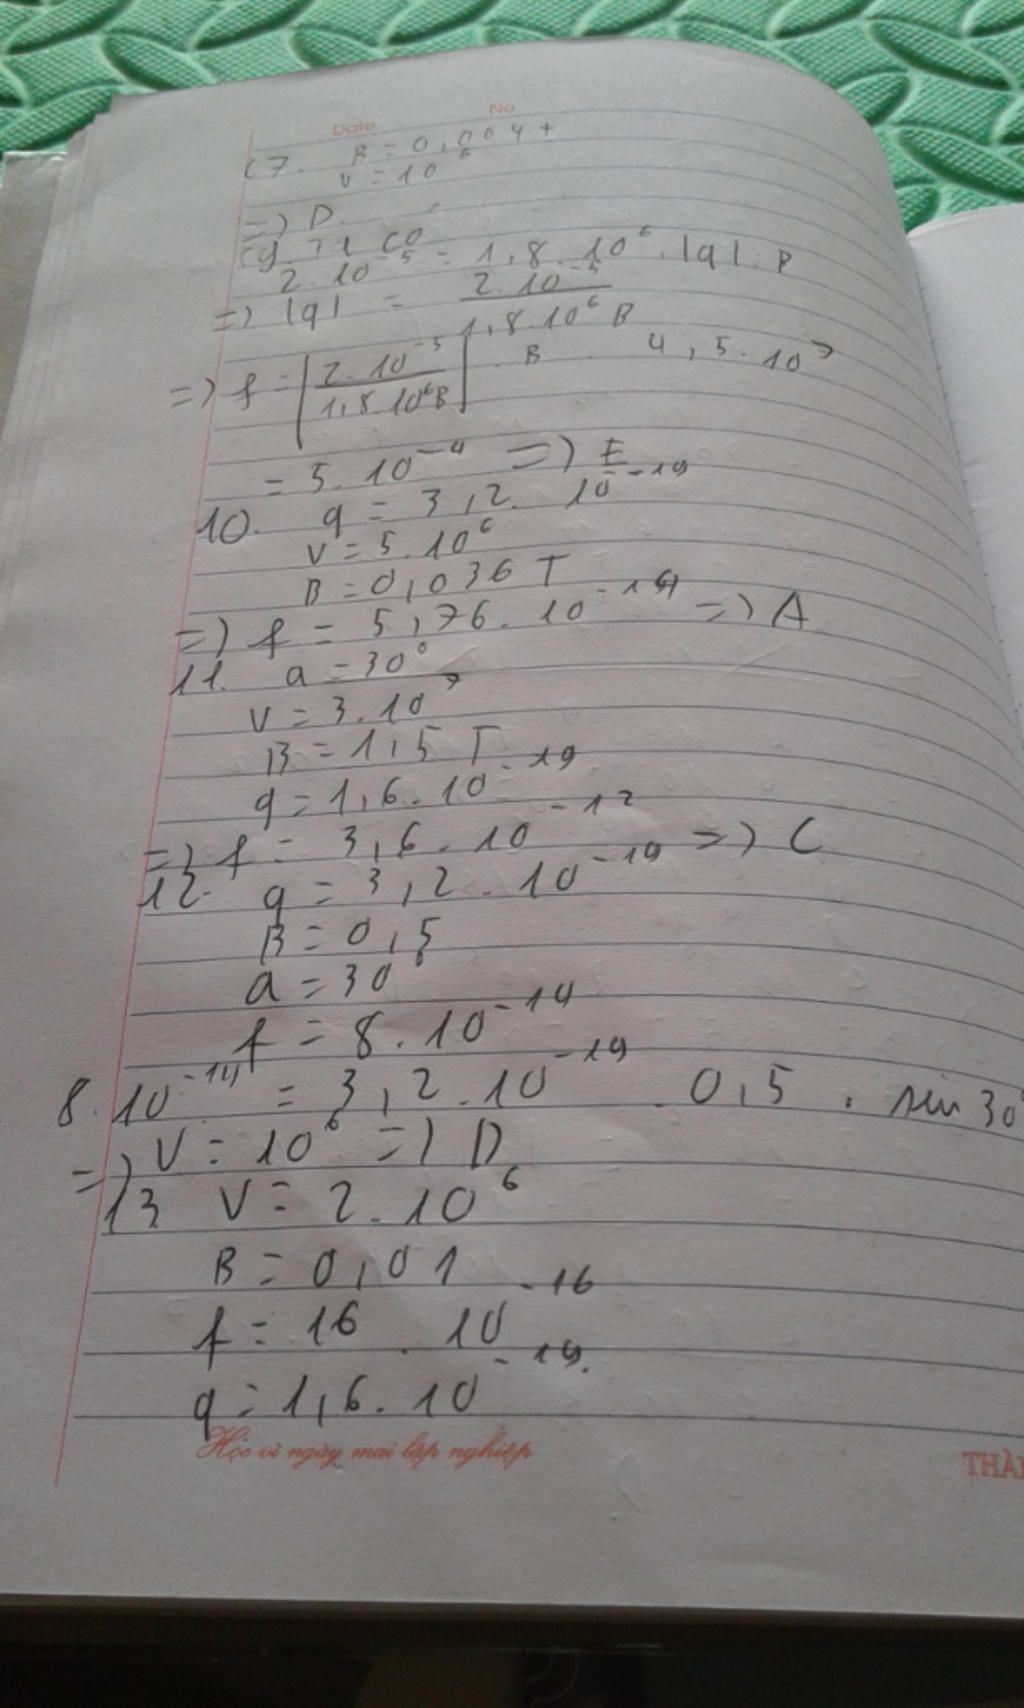 Date No
C7. B = 0,004 t
v = 10⁶
=) D
C9. Ta có
2.10⁻⁵ = 1,8.10⁶.|q|.B
=) |q| = 2.10⁻⁵ / 1,8.10⁶B
=) f = |2.10⁻⁵ / 1,8.10⁶B| . B . 4,5.10⁷
= 5.10⁻⁴ =) E
10. q = 3,2.10⁻¹⁹
V = 5.10⁶
B = 0,036 T
=) f = 5,76.10⁻¹⁴ =) A
11. a = 30°
V = 3.10⁷
B = 1,5 T
q = 1,6.10⁻¹⁹
=) f = 3,6.10⁻¹² =) C
12. q = 3,2.10⁻¹⁹
B = 0,5
a = 30°
f = 8.10⁻¹⁴
8.10⁻¹⁴ = 3,2.10⁻¹⁹ . 0,5 . sin 30°
=) V = 10⁶ =) D
13 V = 2.10⁶
B = 0,01
f = 16.10⁻¹⁶
q = 1,6.10⁻¹⁹.
Học vì ngày mai lập nghiệp